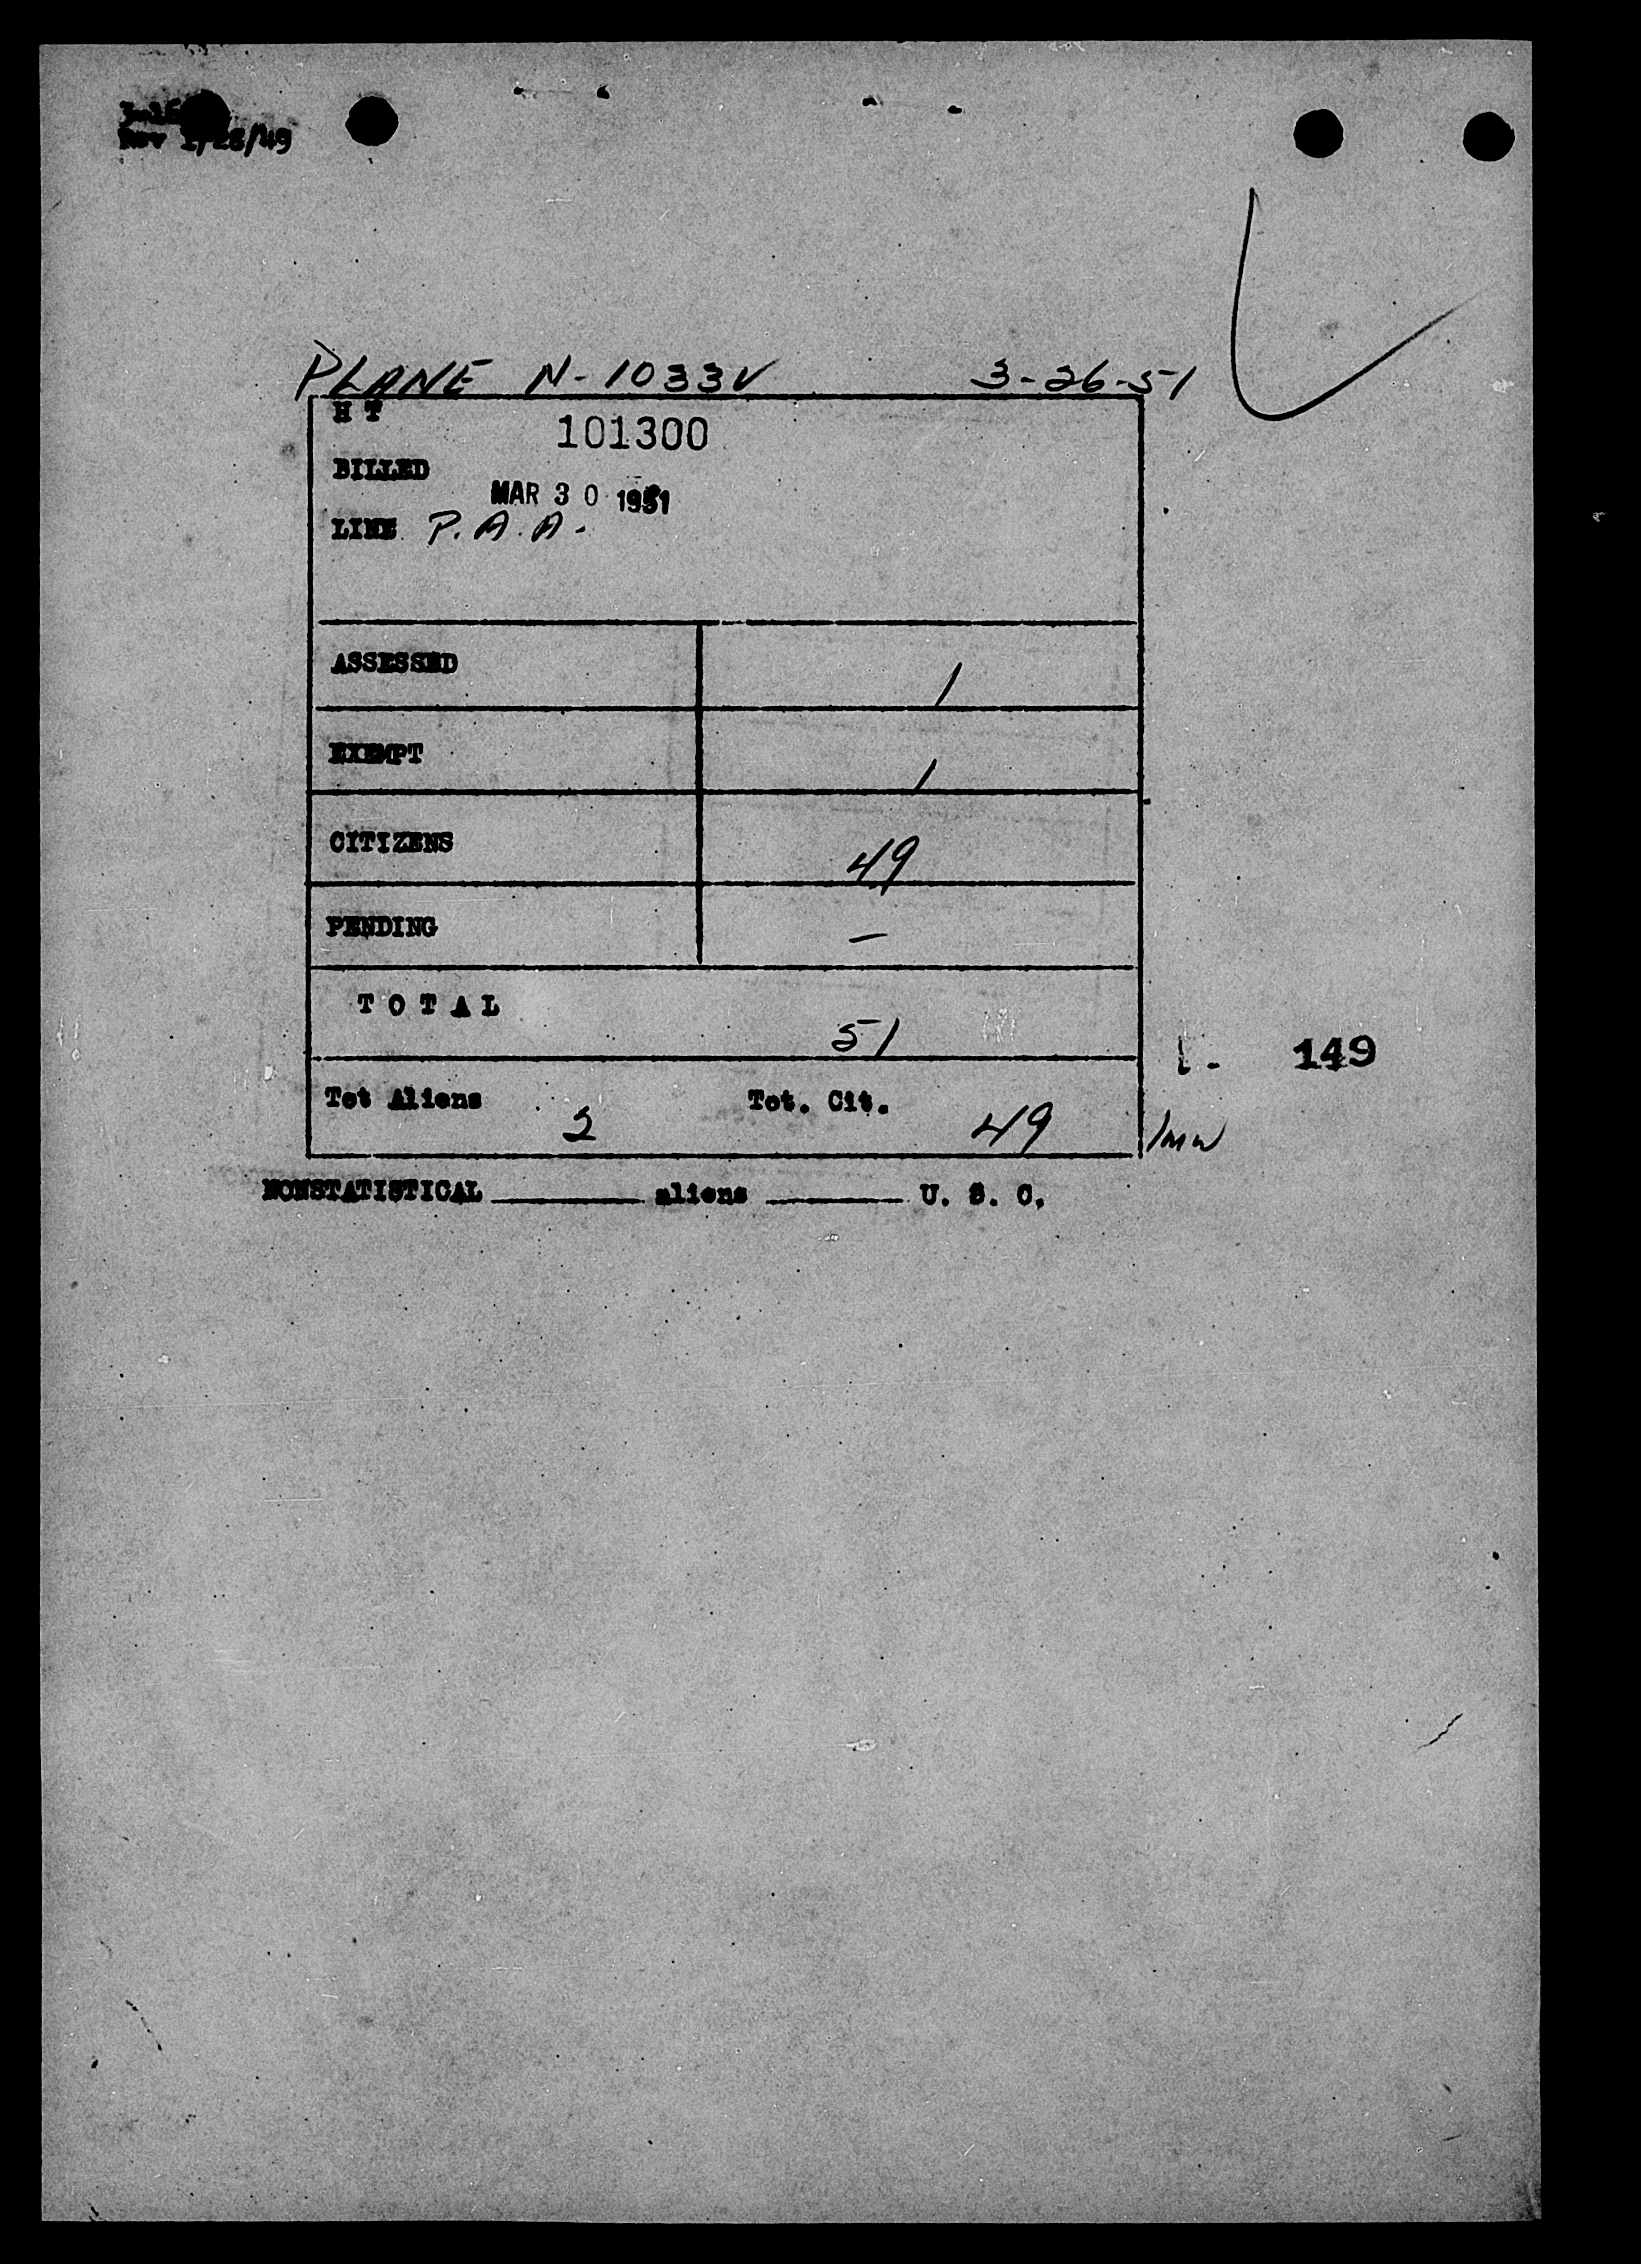 Rev 1/28/49
PLANE N-1033V 3-26-51
H T
101300
BILLED
MAR 30 1951
LINE P.A.A.
ASSESSED 1
EXEMPT 1
CITIZENS 49
PENDING —
T O T A L 51
149
Tot Aliens 2 Tot. Cit. 49
NONSTATISTICAL ________ aliens ________ U. S. C.